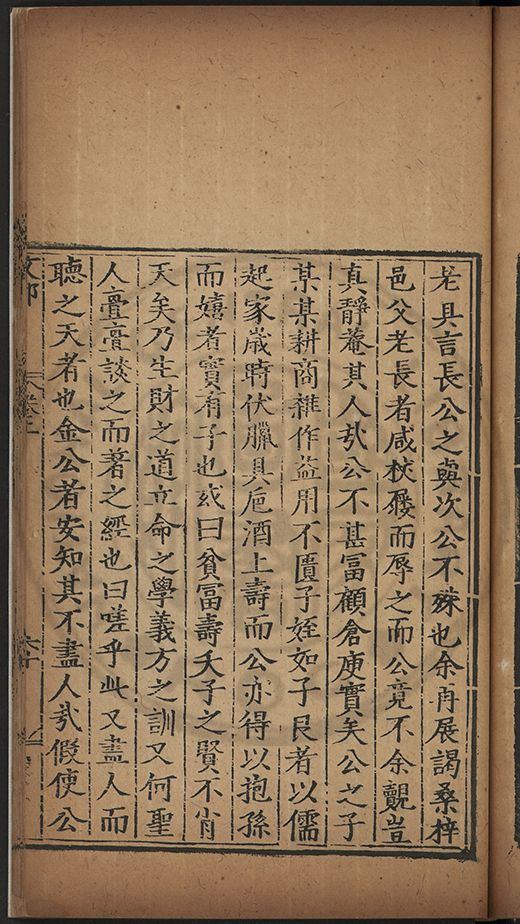 老具言長公之與次公不殊也余再展謁桑梓
邑父老長者咸杖履而辱之而公竟不余覿豈
真靜菴其人㢤公不甚冨顧倉庾實矣公之子
某某耕商雜作益用不匱子姪如子艮者以儒
起家歲時伏臘具巵酒上壽而公亦得以抱孫
而嬉者實有子也或曰貧冨壽夭子之賢不肖
天矣乃生財之道立命之學義方之訓又何聖
人亹亹談之而著之經也曰嗟乎此又盡人而
聽之天者也金公者安知其不盡人㢤假使公